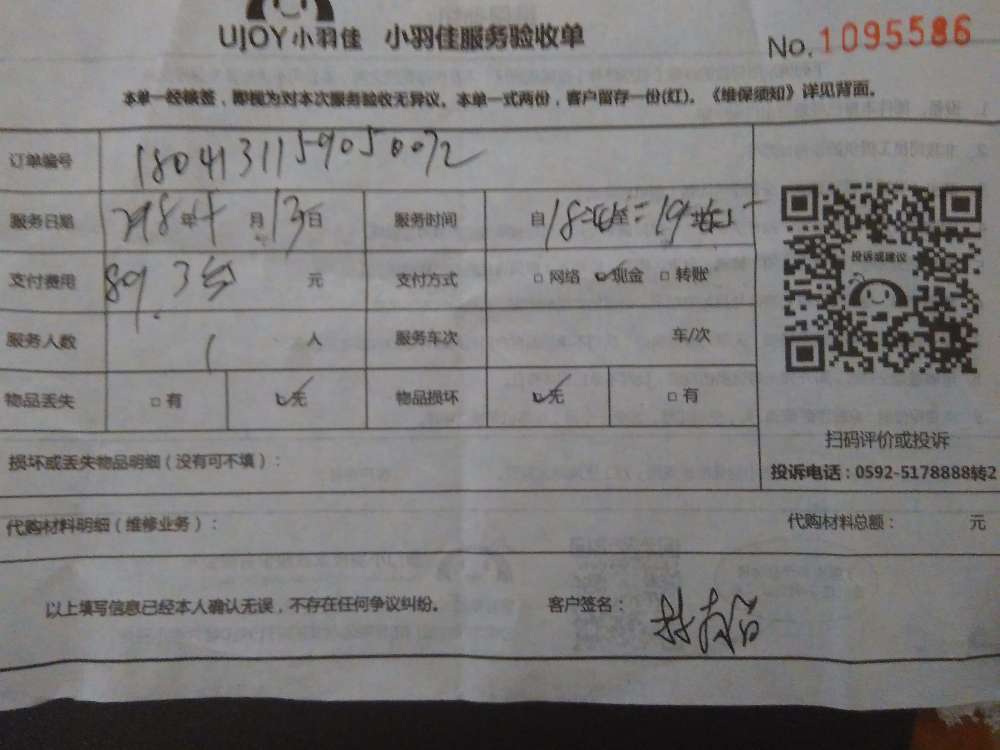 UJOY小羽佳 小羽佳服务验收单
No. 1095586
本单一经签签，即视为对本次服务验收无异议。本单一式两份，客户留存一份(红)。《维保须知》详见背面。
订单编号 18041311590500 72
服务日期 2018年4月13日 服务时间 自18 至 19
支付费用 89.3 元 支付方式 □网络 ☑现金 □转账
服务人数 1 人 服务车次 车/次
物品丢失 □有 ☑无 物品损坏 ☑无 □有
投诉或建议
扫码评价或投诉
损坏或丢失物品明细（没有可不填）：
投诉电话：0592-5178888转2
代购材料明细（维修业务）： 代购材料总额： 元
以上填写信息已经本人确认无误，不存在任何争议纠纷。 客户签名：